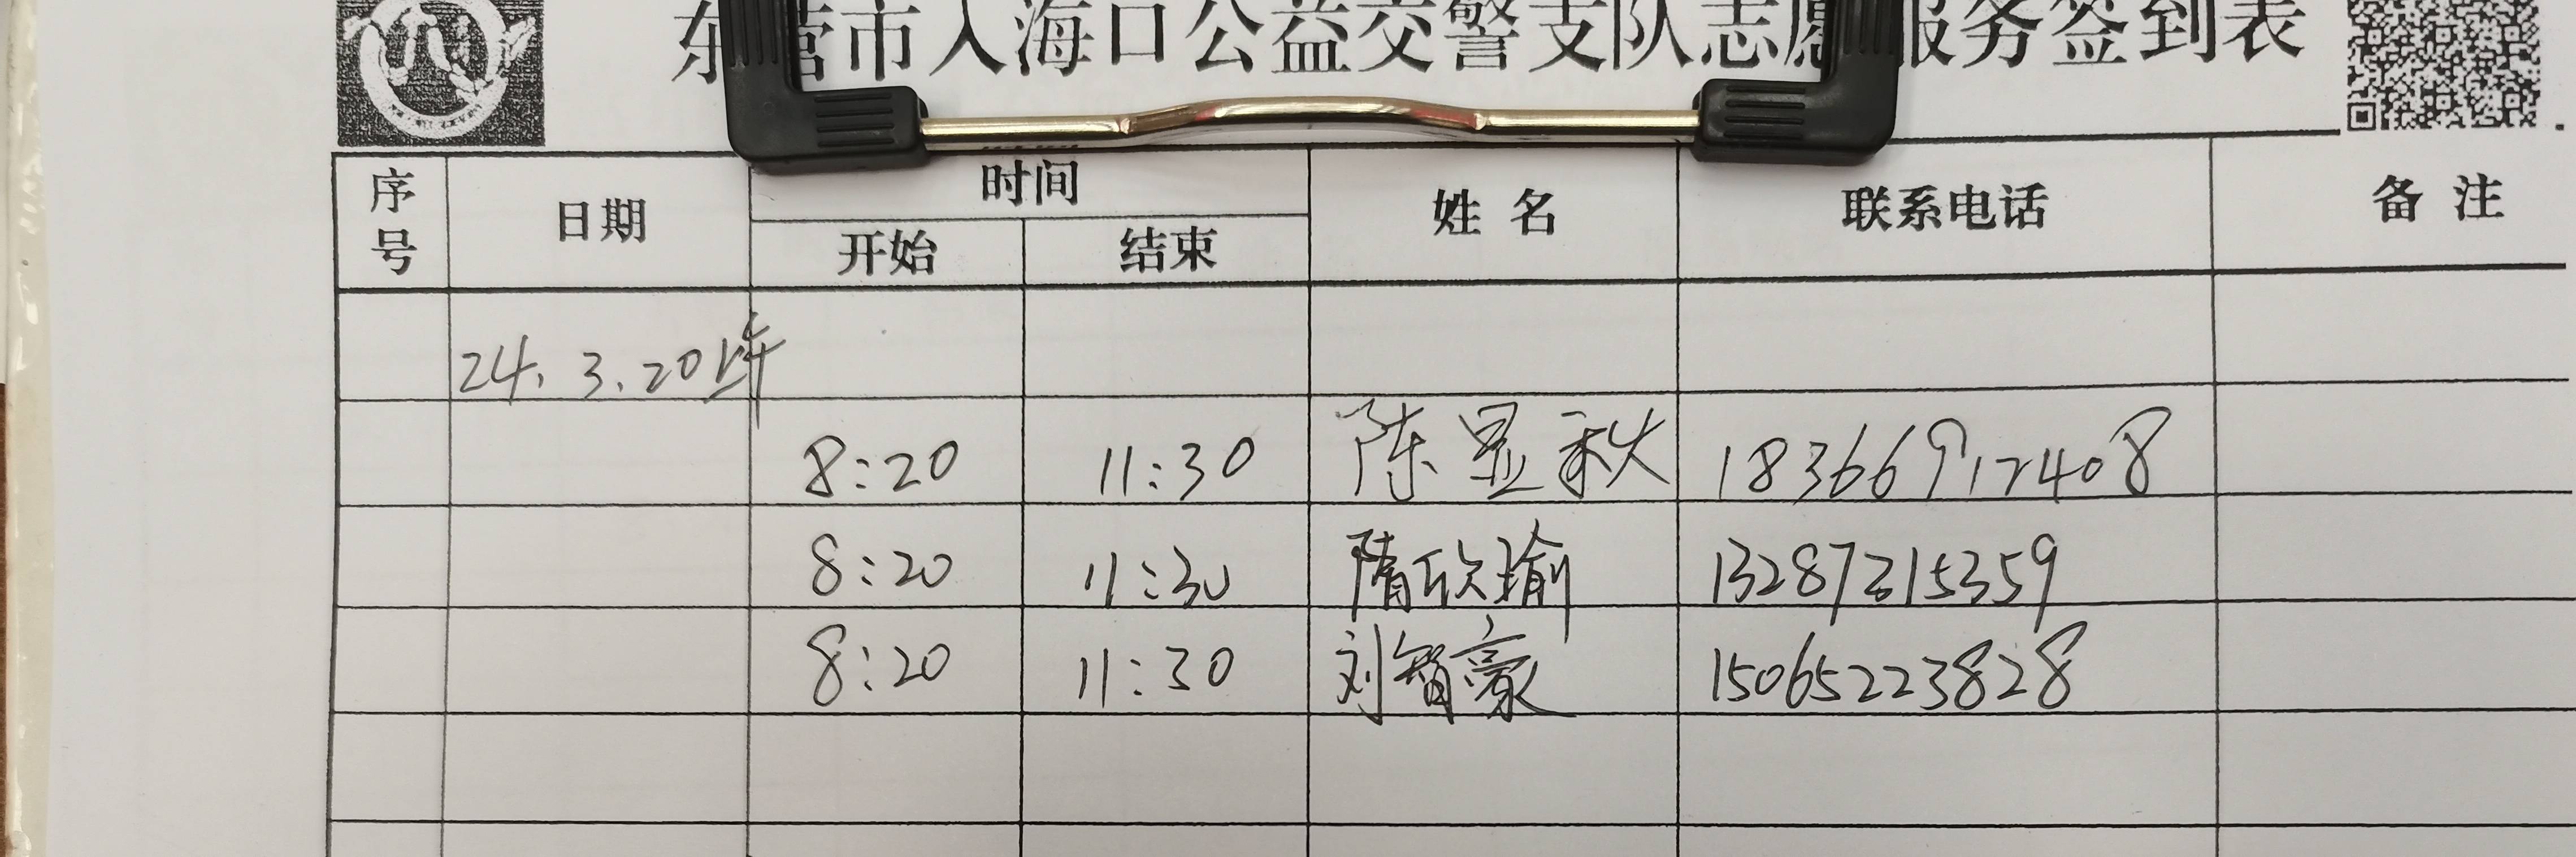 东营市入海口公益交警支队志愿服务签到表
序号 日期 时间 姓名 联系电话 备注
开始 结束
24.3.20上午
8:20 11:30 陈显秋 18366917408
8:20 11:30 隋欣瑜 13287315359
8:20 11:30 刘智豪 15065223828